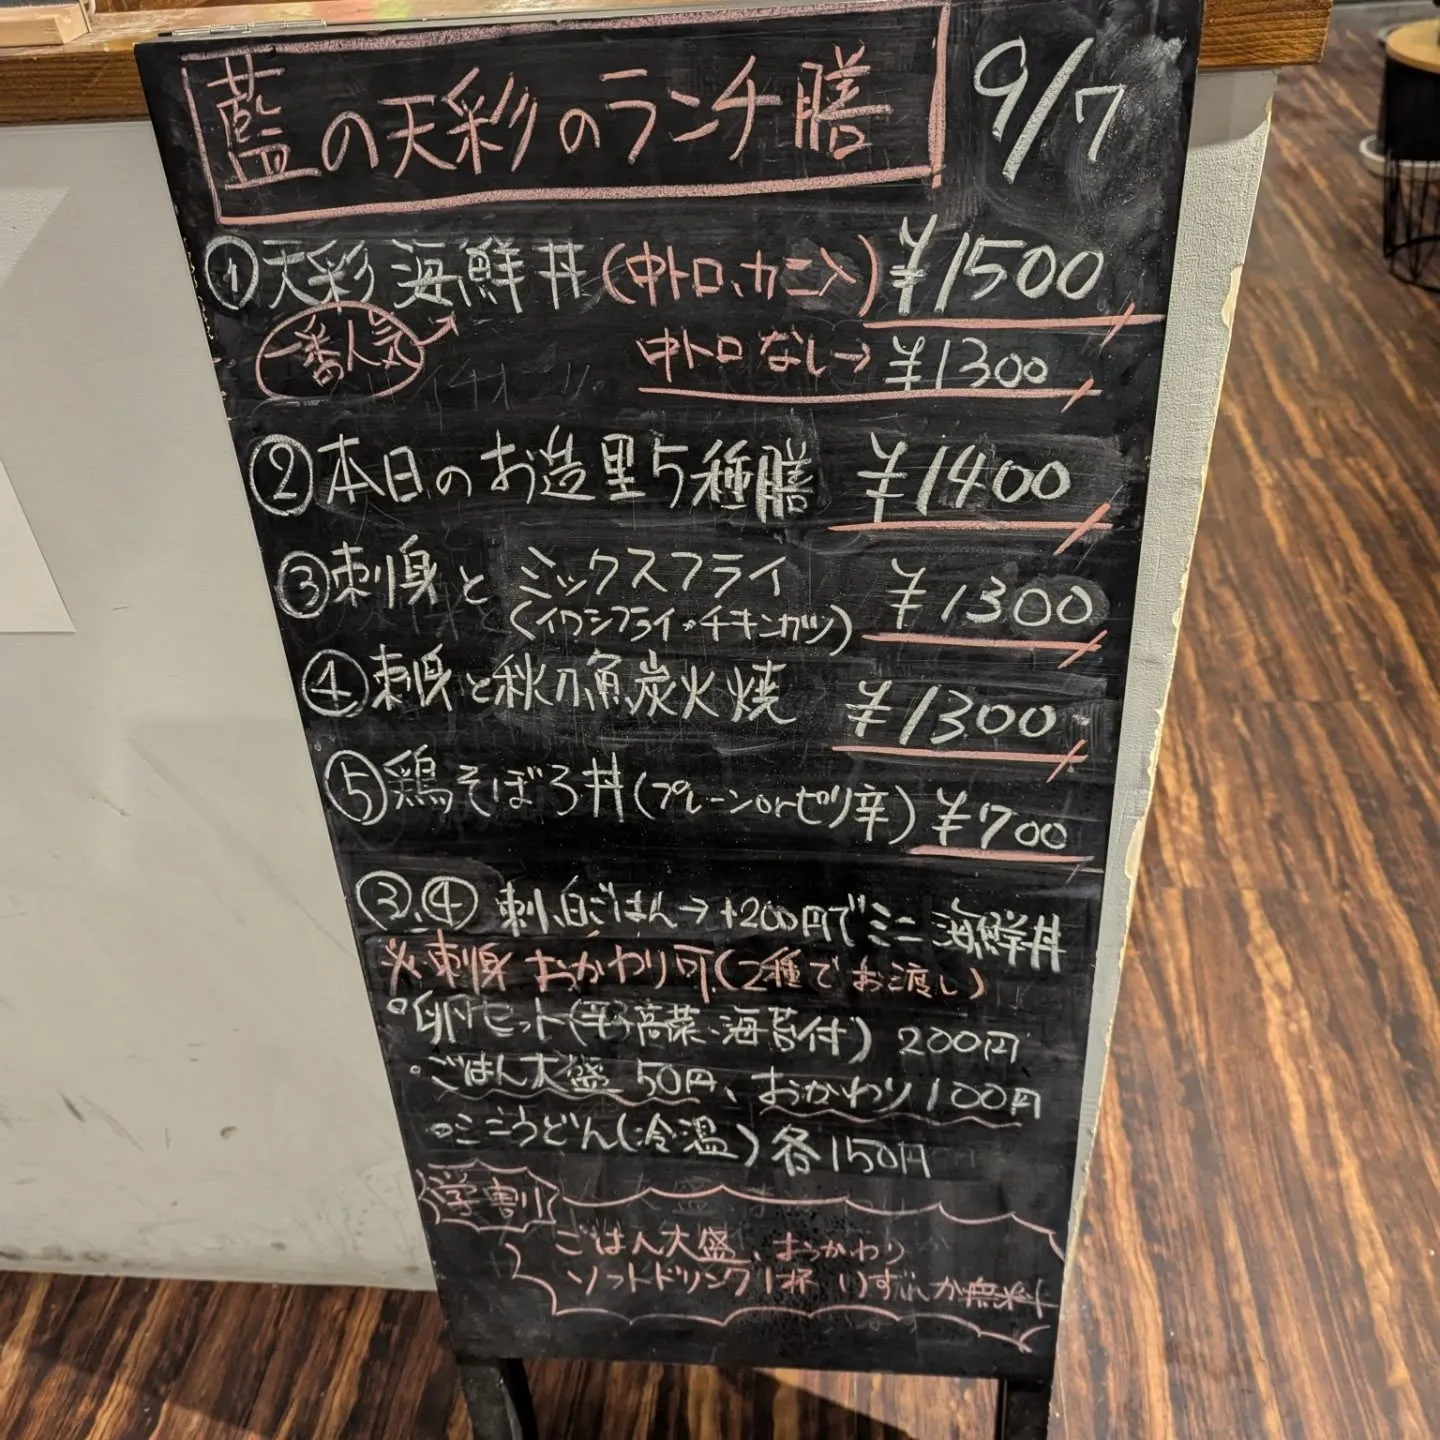 藍の天彩のランチ膳 9/7
①天彩海鮮丼(中トロ、カニ入) ¥1500
一番人気 中トロなし→¥1300
②本日のお造里5種膳 ¥1400
③刺身とミックスフライ ¥1300
(イワシフライ・チキンカツ)
④刺身と秋刀魚炭火焼 ¥1300
⑤鶏そぼろ丼(プレーンorピリ辛) ¥700
③,④ 刺,白ごはん→+200円でミニ海鮮丼
※刺身おかわり可(2種でお渡し)
°卵セット(辛子高菜・海苔付) 200円
°ごはん大盛 50円、おかわり100円
°ミニうどん(冷温)各150円
学割
ごはん大盛、おかわり
ソフトドリンク1杯 いずれか無料